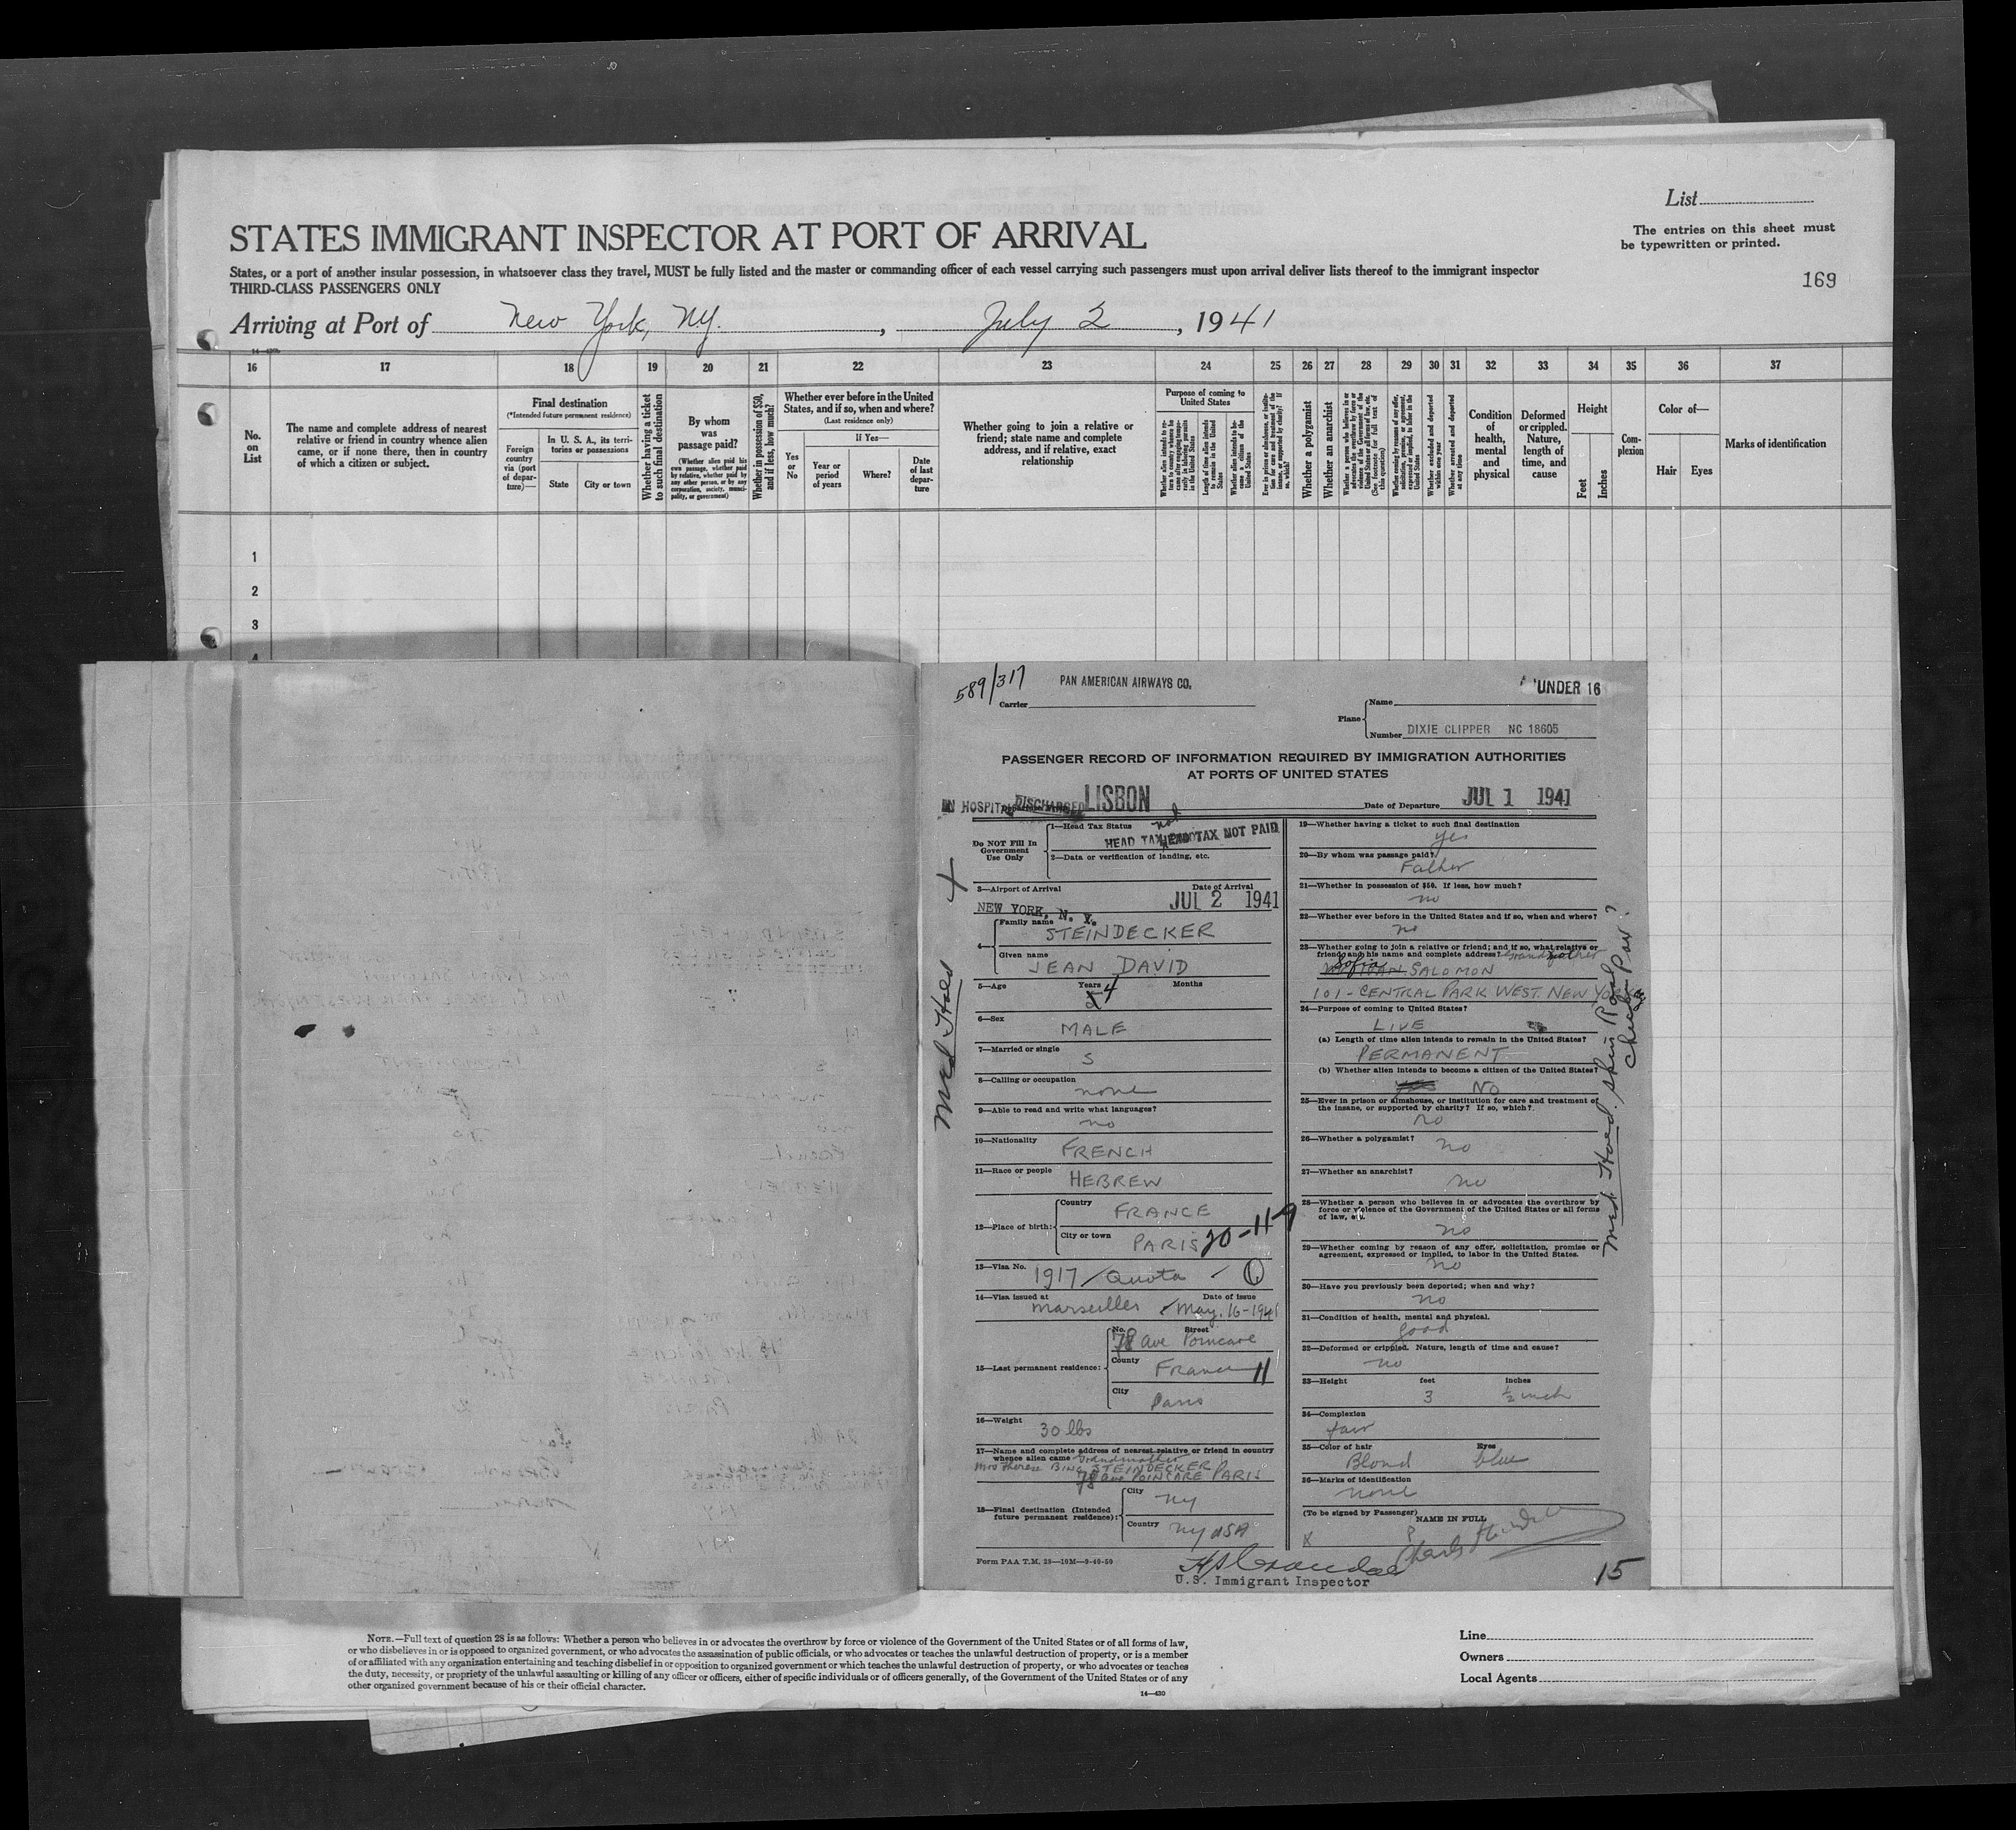 List
The entries on this sheet must
be typewritten or printed.
STATES IMMIGRANT INSPECTOR AT PORT OF ARRIVAL
States, or a port of another insular possession, in whatsoever class they travel, MUST be fully listed and the master or commanding officer of each vessel carrying such passengers must upon arrival deliver lists thereof to the immigrant inspector
THIRD-CLASS PASSENGERS ONLY
169
Arriving at Port of New York, N.Y. , July 2 , 1941
16 17 18 19 20 21 22 23 24 25 26 27 28 29 30 31 32 33 34 35 36 37
No. on List
The name and complete address of nearest relative or friend in country whence alien came, or if none there, then in country of which a citizen or subject.
Final destination
(*Intended future permanent residence)
Foreign country via (port of departure)—
In U. S. A., its territories or possessions
State
City or town
Whether having a ticket to such final destination
By whom was passage paid?
(Whether alien paid his own passage, whether paid by relative, whether paid by any other person, or by any corporation, society, municipality, or government)
Whether in possession of $50, and if less, how much?
Whether ever before in the United States, and if so, when and where?
(Last residence only)
Yes or No
If Yes—
Year or period of years
Where?
Date of last departure
Whether going to join a relative or friend; state name and complete address, and if relative, exact relationship
Purpose of coming to United States
Length of time alien intends to remain in the United States
Whether alien intends to become a citizen of the United States
Whether a polygamist
Whether an anarchist
Whether excluded and deported within one year
Whether arrested and deported at any time
Condition of health, mental and physical
Deformed or crippled. Nature, length of time, and cause
Height
Feet
Inches
Complexion
Color of—
Hair
Eyes
Marks of identification
1
2
3
4
589/317
PAN AMERICAN AIRWAYS CO.
UNDER 16
Carrier
Plane
Name
Number DIXIE CLIPPER NC 18605
PASSENGER RECORD OF INFORMATION REQUIRED BY IMMIGRATION AUTHORITIES
AT PORTS OF UNITED STATES
IN HOSPITAL DISCHARGED LISBON
Date of Departure JUL 1 1941
Do NOT Fill In
Government
Use Only
1—Head Tax Status
not
HEAD TAX NOT PAID
2—Data or verification of landing, etc.
3—Airport of Arrival
Date of Arrival
NEW YORK, N. Y.
JUL 2 1941
4—
Family name
STEINDECKER
Given name
JEAN DAVID
5—Age
Years
Months
4
6—Sex
MALE
7—Married or single
S
8—Calling or occupation
none
9—Able to read and write what languages?
no
10—Nationality
FRENCH
11—Race or people
HEBREW
12—Place of birth:
Country
FRANCE
City or town
PARIS 20-11-9
13—Visa No.
1917 / Quota
14—Visa issued at
Date of Issue
Marseilles May. 16-1941
15—Last permanent residence:
No.
Street
78 Ave Poincare
County
France 11
City
Paris
16—Weight
30 lbs
17—Name and complete address of nearest relative or friend in country
whence alien came Grandmother
Mrs Therese BING STEINDECKER
78 ave POINCARE PARIS
18—Final destination (Intended
future permanent residence):
City
NY
Country
NY USA
Form PAA T.M. 28—10M—9-40-50
U.S. Immigrant Inspector
Med Hoed
19—Whether having a ticket to such final destination
yes
20—By whom was passage paid?
Father
21—Whether in possession of $50. If less, how much?
no
22—Whether ever before in the United States and if so, when and where?
no
23—Whether going to join a relative or friend; and if so, what relative or
friend and his name and complete address?
Sofia
SALOMON
101-CENTRAL PARK WEST. NEW YORK
24—Purpose of coming to United States?
LIVE
(a) Length of time alien intends to remain in the United States?
PERMANENT
(b) Whether alien intends to become a citizen of the United States?
yes NO
25—Ever in prison or almshouse, or institution for care and treatment of
the insane, or supported by charity? If so, which?
no
26—Whether a polygamist?
no
27—Whether an anarchist?
no
28—Whether a person who believes in or advocates the overthrow by
force or violence of the Government of the United States or all forms
of law, etc.
no
29—Whether coming by reason of any offer, solicitation, promise or
agreement, expressed or implied, to labor in the United States.
no
30—Have you previously been deported; when and why?
no
31—Condition of health, mental and physical.
good
32—Deformed or crippled. Nature, length of time and cause?
no
33—Height
feet
inches
3
½ inch
34—Complexion
fair
35—Color of hair
Eyes
Blond
blue
36—Marks of identification
none
(To be signed by Passenger)
NAME IN FULL
X
15
Med Hoed. skin Rash
Chicken Pox?
NOTE.—Full text of question 28 is as follows: Whether a person who believes in or advocates the overthrow by force or violence of the Government of the United States or of all forms of law,
or who disbelieves in or is opposed to organized government, or who advocates the assassination of public officials, or who advocates or teaches the unlawful destruction of property, or is a member
of or affiliated with any organization entertaining and teaching disbelief in or opposition to organized government or which teaches the unlawful destruction of property, or who advocates or teaches
the duty, necessity, or propriety of the unlawful assaulting or killing of any officer or officers, either of specific individuals or of officers generally, of the Government of the United States or of any
other organized government because of his or their official character.
14—430
Line
Owners
Local Agents